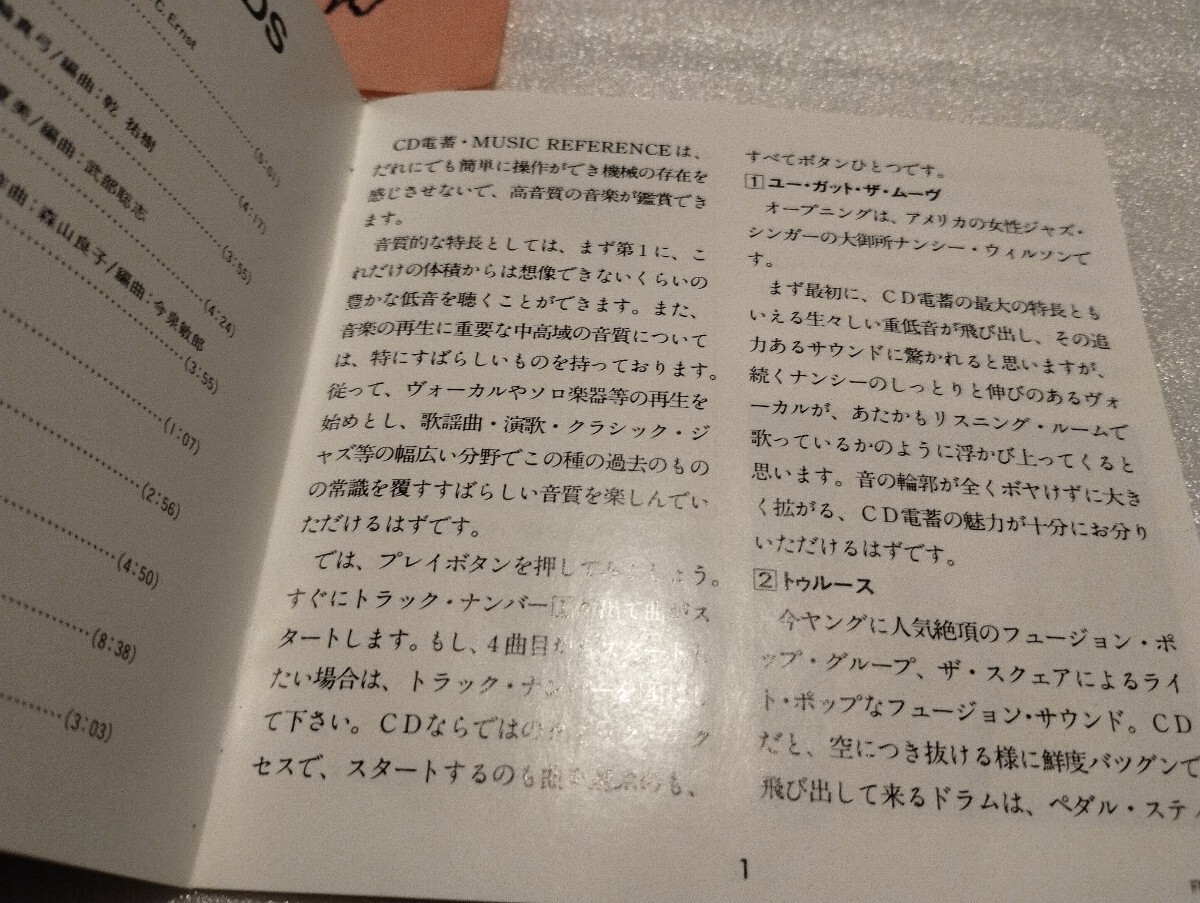 DS
C. Ernst
(5:01)
真弓/編曲:乾 祐樹
(4:17)
美/編曲:武部聡志
(3:55)
作曲:森山良子/編曲:今泉敏郎
(4:24)
(3:55)
(1:07)
(2:56)
(4:50)
(8:38)
(3:03)
CD電蓄・MUSIC REFERENCEは、
だれにでも簡単に操作ができ機械の存在を
感じさせないで、高音質の音楽が鑑賞でき
ます。
音質的な特長としては、まず第1に、こ
れだけの体積からは想像できないくらいの
豊かな低音を聴くことができます。また、
音楽の再生に重要な中高域の音質について
は、特にすばらしいものを持っております。
従って、ヴォーカルやソロ楽器等の再生を
始めとし、歌謡曲・演歌・クラシック・ジ
ャズ等の幅広い分野でこの種の過去のもの
の常識を覆すすばらしい音質を楽しんでい
ただけるはずです。
では、プレイボタンを押してみましょう。
すぐにトラック・ナンバー1が出て曲がス
タートします。もし、4曲目か
たい場合は、トラック・ナン
て下さい。CDならではの
セスで、スタートするのも曲を選ぶのも、
すべてボタンひとつです。
1 ユー・ガット・ザ・ムーヴ
オープニングは、アメリカの女性ジャズ・
シンガーの大御所ナンシー・ウィルソンで
す。
まず最初に、CD電蓄の最大の特長とも
いえる生々しい重低音が飛び出し、その迫
力あるサウンドに驚かれると思いますが、
続くナンシーのしっとりと伸びのあるヴォ
ーカルが、あたかもリスニング・ルームで
歌っているかのように浮かび上ってくると
思います。音の輪郭が全くボヤけずに大き
く拡がる、CD電蓄の魅力が十分にお分り
いただけるはずです。
2 トゥルース
今ヤングに人気絶頂のフュージョン・ポ
ップ・グループ、ザ・スクェアによるライ
ト・ポップなフュージョン・サウンド。CD
だと、空につき抜ける様に鮮度バツグンで
飛び出して来るドラムは、ペダル・ステ
1